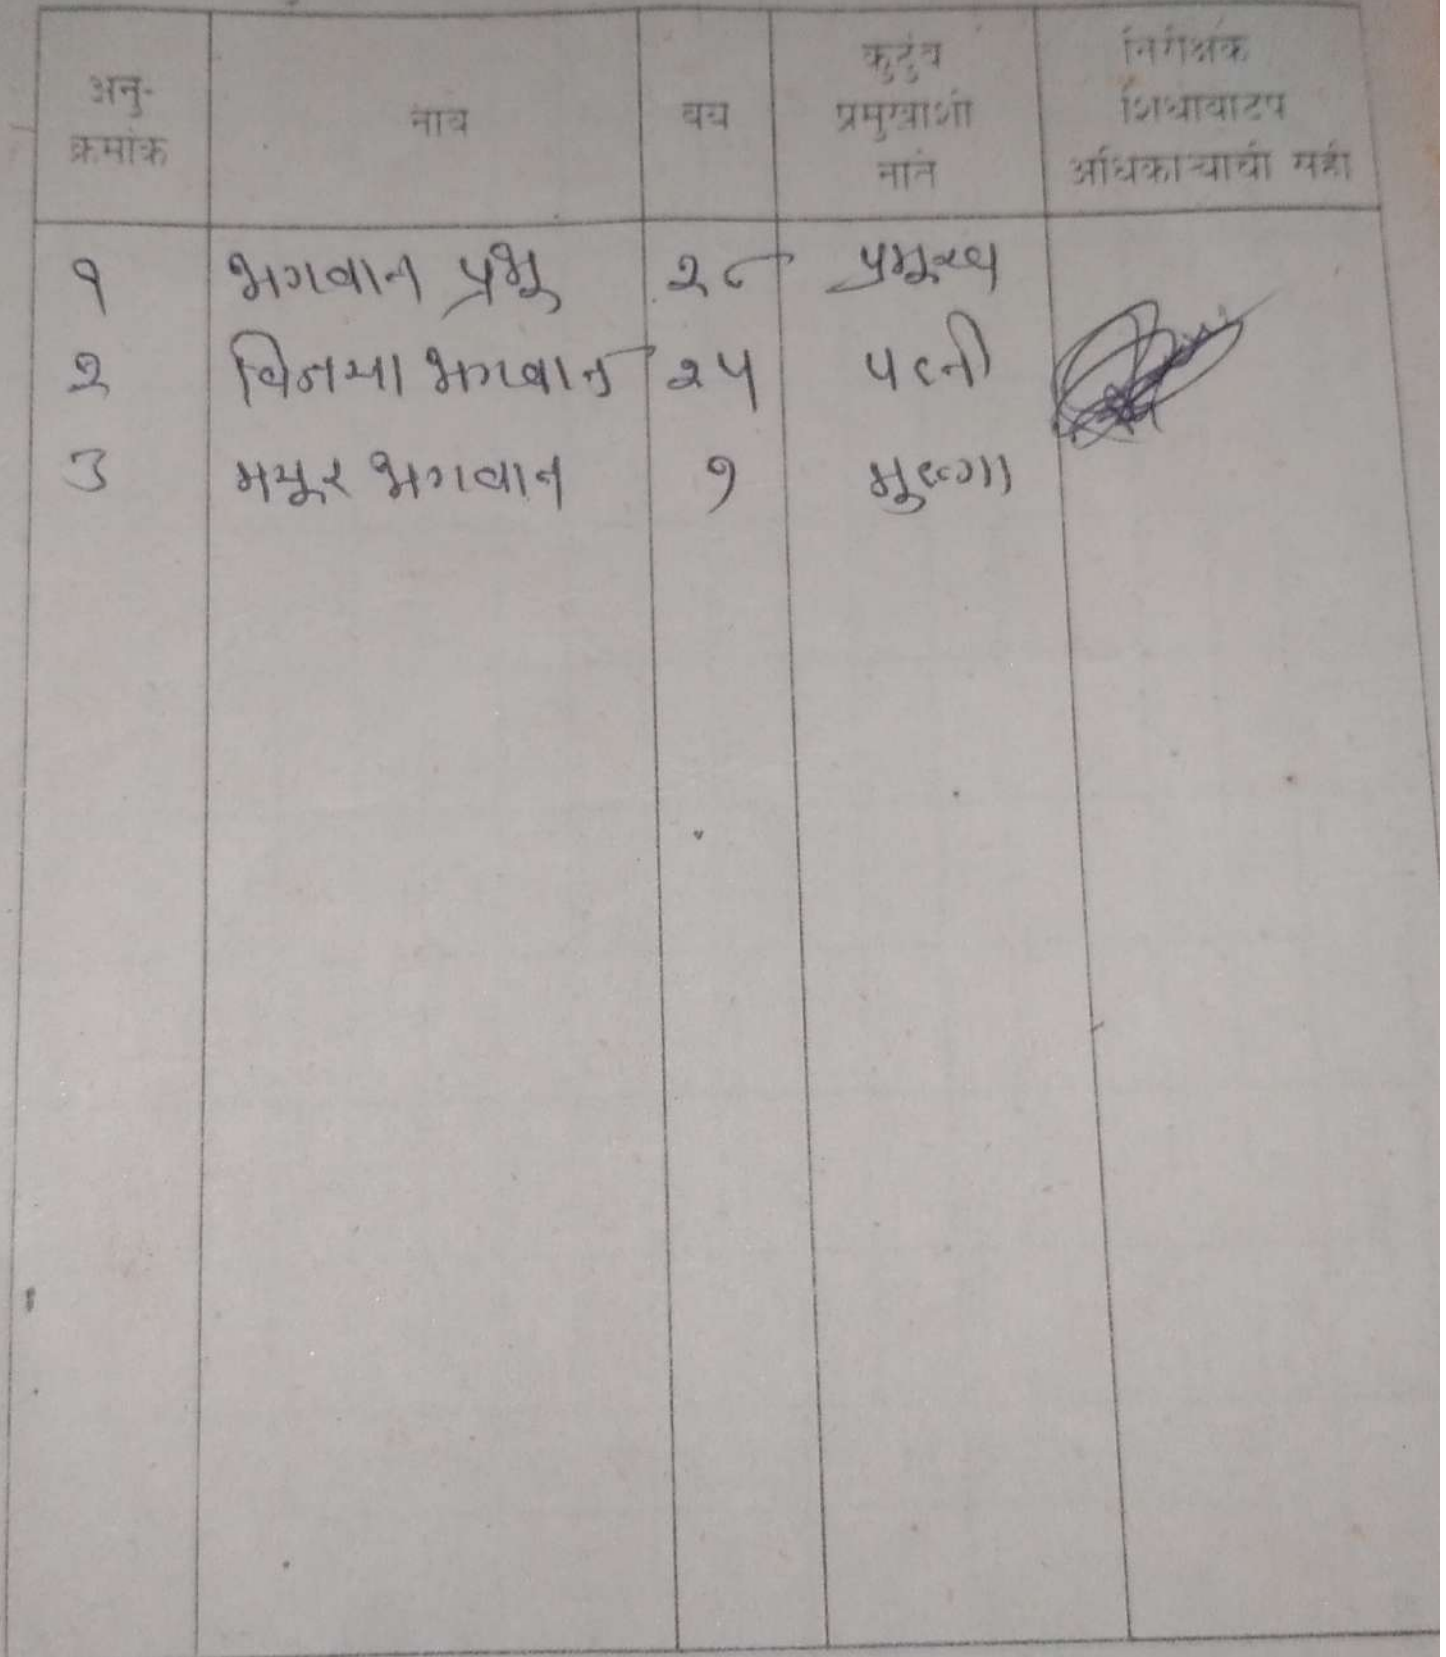 अनु-क्रमांक नाव वय कुटुंब प्रमुखाशी नाते निरीक्षक शिधावाटप अधिकाऱ्याची सही
१ भगवान प्रभू २८ प्रमूख
२ विनया भगवान २५ पत्नी
३ मयूर भगवान १ मुलगा